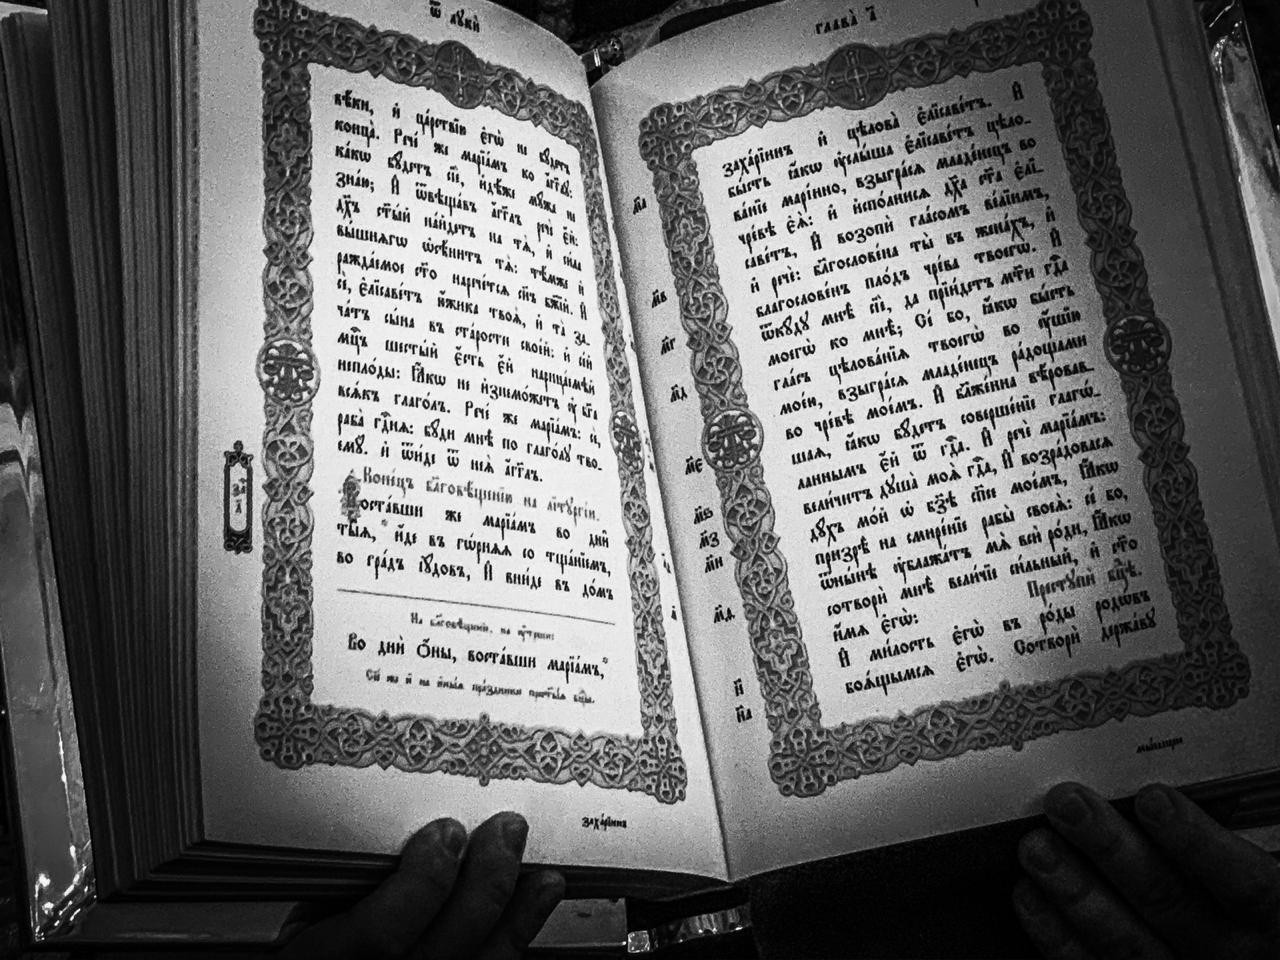 ѿ лукѝ
вѣ́ки, и҆ ца́рствїю є҆гѡ̀ не бꙋ́детъ
конца̀. Рече́ же марїа́мъ ко а҆́гг҃лꙋ:
ка́кѡ бꙋ́детъ сїѐ, и҆дѣ́же мꙋ́жа не
зна́ю; И҆ ѿвѣща́въ а҆́гг҃лъ речѐ є҆́й:
дх҃ъ ст҃ы́й на́йдетъ на тѧ̀, и҆ си́ла
вы́шнѧгѡ ѡ҆сѣни́тъ тѧ̀: тѣ́мже и҆
ражда́емое ст҃о нарече́тсѧ сн҃ъ бж҃їй. И҆
сѐ, є҆лїсаве́тъ ю҆́жика твоѧ̀, и҆ та̀ за-
ча́тъ сы́на въ ста́рости свое́й: и҆ се́й
мц҃ъ шесты́й є҆́сть є҆́й нарица́емѣй
непло́ды: Ꙗ҆́кѡ не и҆знемо́жетъ ᲂу҆ бг҃а
всѧ́къ глаго́лъ. Рече́ же марїа́мъ: сѐ,
раба̀ гдⷭ҇нѧ: бꙋ́ди мнѣ̀ по глаго́лꙋ тво-
емꙋ̀. и҆ ѿи́де ѿ неѧ̀ а҆́гг҃лъ.
Коне́цъ бл҃говѣ́щенїю на лїтꙋргі́и.
за҃ч
д҃
Воста́вши же марїа́мъ во дни̑
ты̑ѧ, * и҆́де въ гѡ́рнѧѧ со тща́нїемъ,
во гра́дъ і҆ꙋ́довъ, И҆ вни́де въ до́мъ
На бл҃говѣ́щенїи, на ᲂу҆́трени:
Во дни̑ ѻ҆́ны, воста́вши марїа́мъ,*
Сїѐ же и҆ на и҆ны̑ѧ пра́здники прест҃ы́ѧ бц҃ы.
заха́рїинъ
глава̀ а҃
заха́рїинъ и҆ цѣлова̀ є҆лїсаве́тъ. И҆
бы́сть ꙗ҆́кѡ ᲂу҆слы́ша є҆лїсаве́тъ цѣло-
ва́нїе марі́ино, взыгра́сѧ младе́нецъ во
чре́вѣ є҆ѧ̀: и҆ и҆спо́лнисѧ дх҃а ст҃а є҆лї-
саве́тъ, И҆ возопѝ гла́сомъ ве́лїимъ,
и҆ речѐ: бл҃гослове́на ты̀ въ жена́хъ, и҆
благослове́нъ пло́дъ чре́ва твоегѡ̀. И҆
ѿкꙋ́дꙋ мнѣ̀ сїѐ, да прїи́детъ мт҃и гдⷭ҇а
моегѡ̀ ко мнѣ̀; Се́ бо, ꙗ҆́кѡ бы́сть
гла́съ цѣлова́нїѧ твоегѡ̀ во ᲂу҆́шїю
мое́ю, взыгра́сѧ младе́нецъ ра́дощами
во чре́вѣ мое́мъ. И҆ бл҃же́нна вѣ́ровав-
шаѧ, ꙗ҆́кѡ бꙋ́детъ соверше́нїе глагѡ́-
ланнымъ є҆́й ѿ гдⷭ҇а. И҆ речѐ марїа́мъ:
вели́читъ дꙋша̀ моѧ̀ гдⷭ҇а, И҆ возра́довасѧ
дꙋ́хъ мо́й ѡ҆ бз҃ѣ сп҃сѣ мое́мъ, Ꙗ҆́кѡ
призрѣ̀ на смире́нїе рабы̀ своеѧ̀: се́ бо,
ѿнн҃ѣ ᲂу҆блажа́тъ мѧ̀ всѝ ро́ди, Ꙗ҆́кѡ
сотворѝ мнѣ̀ вели́чїе си́льный, и҆ ст҃о
и҆́мѧ є҆гѡ̀: Престꙋпѝ бц҃ѣ.
И҆ ми́лость є҆гѡ̀ въ ро́ды родѡ́въ
боѧ́щымсѧ є҆гѡ̀. Сотворѝ держа́вꙋ
м҃а
м҃в
м҃г
м҃д
м҃є
м҃ѕ
м҃з
м҃и
м҃ѳ
н҃
н҃а
мы́шцею